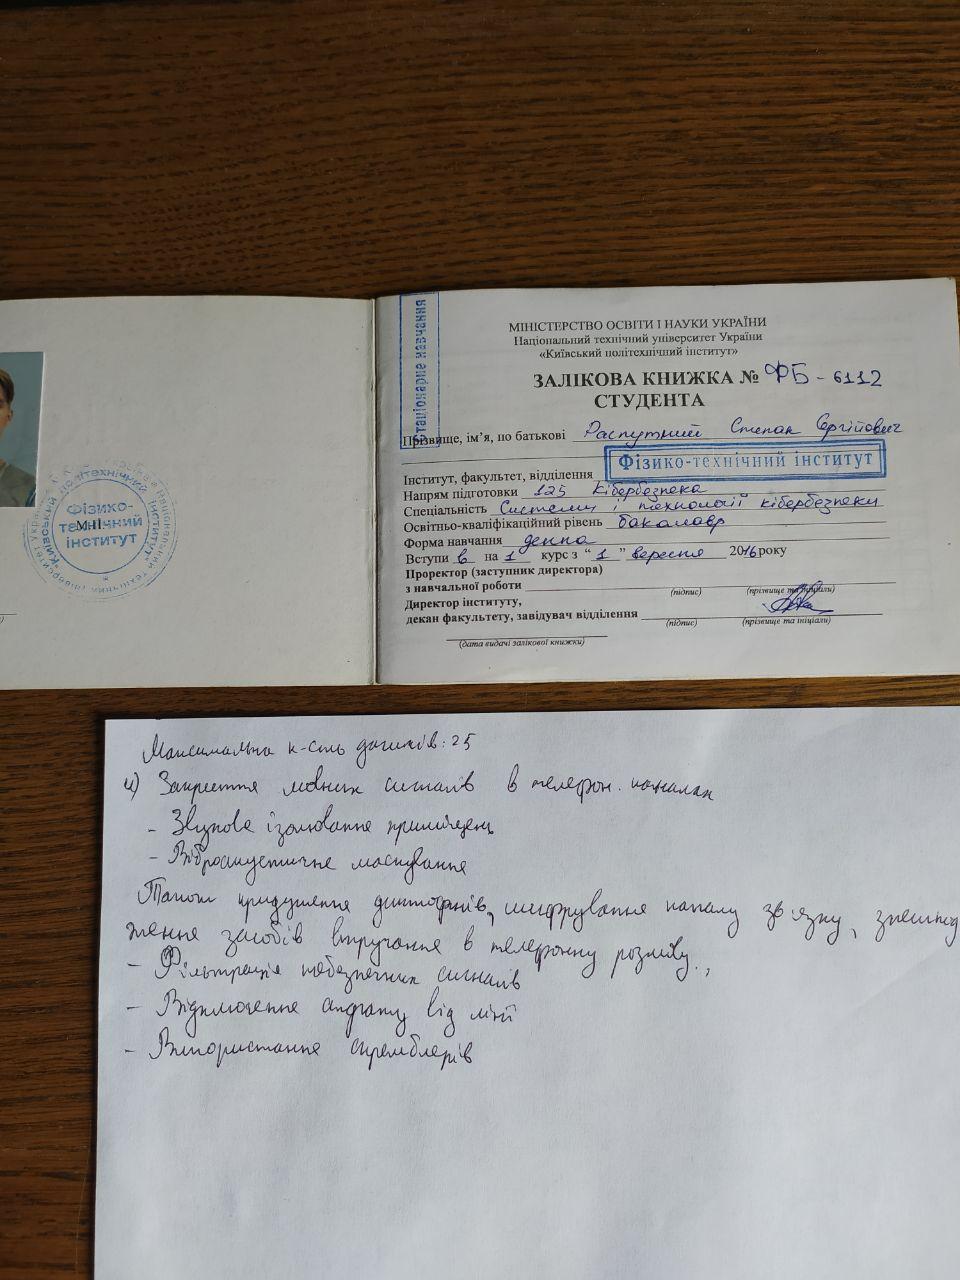 стаціонарне навчання
МІНІСТЕРСТВО ОСВІТИ І НАУКИ УКРАЇНИ
Національний технічний університет України
«Київський політехнічний інститут»
ЗАЛІКОВА КНИЖКА № ФБ - 6112
СТУДЕНТА
Прізвище, ім’я, по батькові Распутний Степан Сергійович
Інститут, факультет, відділення Фізико-технічний інститут
Напрям підготовки 125 Кібербезпека
Спеціальність Системи і технології кібербезпеки
Освітньо-кваліфікаційний рівень бакалавр
Форма навчання денна
Вступи в на 1 курс з “ 1 ” вересня 2016 року
Проректор (заступник директора)
з навчальної роботи
(підпис) (прізвище та ініціали)
Директор інституту,
декан факультету, завідувач відділення
(підпис) (прізвище та ініціали)
(дата видачі залікової книжки)
Фізико-
технічний
інститут
Максимальна к-сть датчиків: 25
4) Закриття мовних сигналів в телефон. каналах
- Звукове ізолювання приміщень
- Віброакустичне маскування
Також придушення диктофонів, шифрування каналу зв'язку, знешкод
ження засобів втручання в телефонну розмову.
- Фільтрація небезпечних сигналів
- Відключення апарату від лінії
- Використання скремблерів